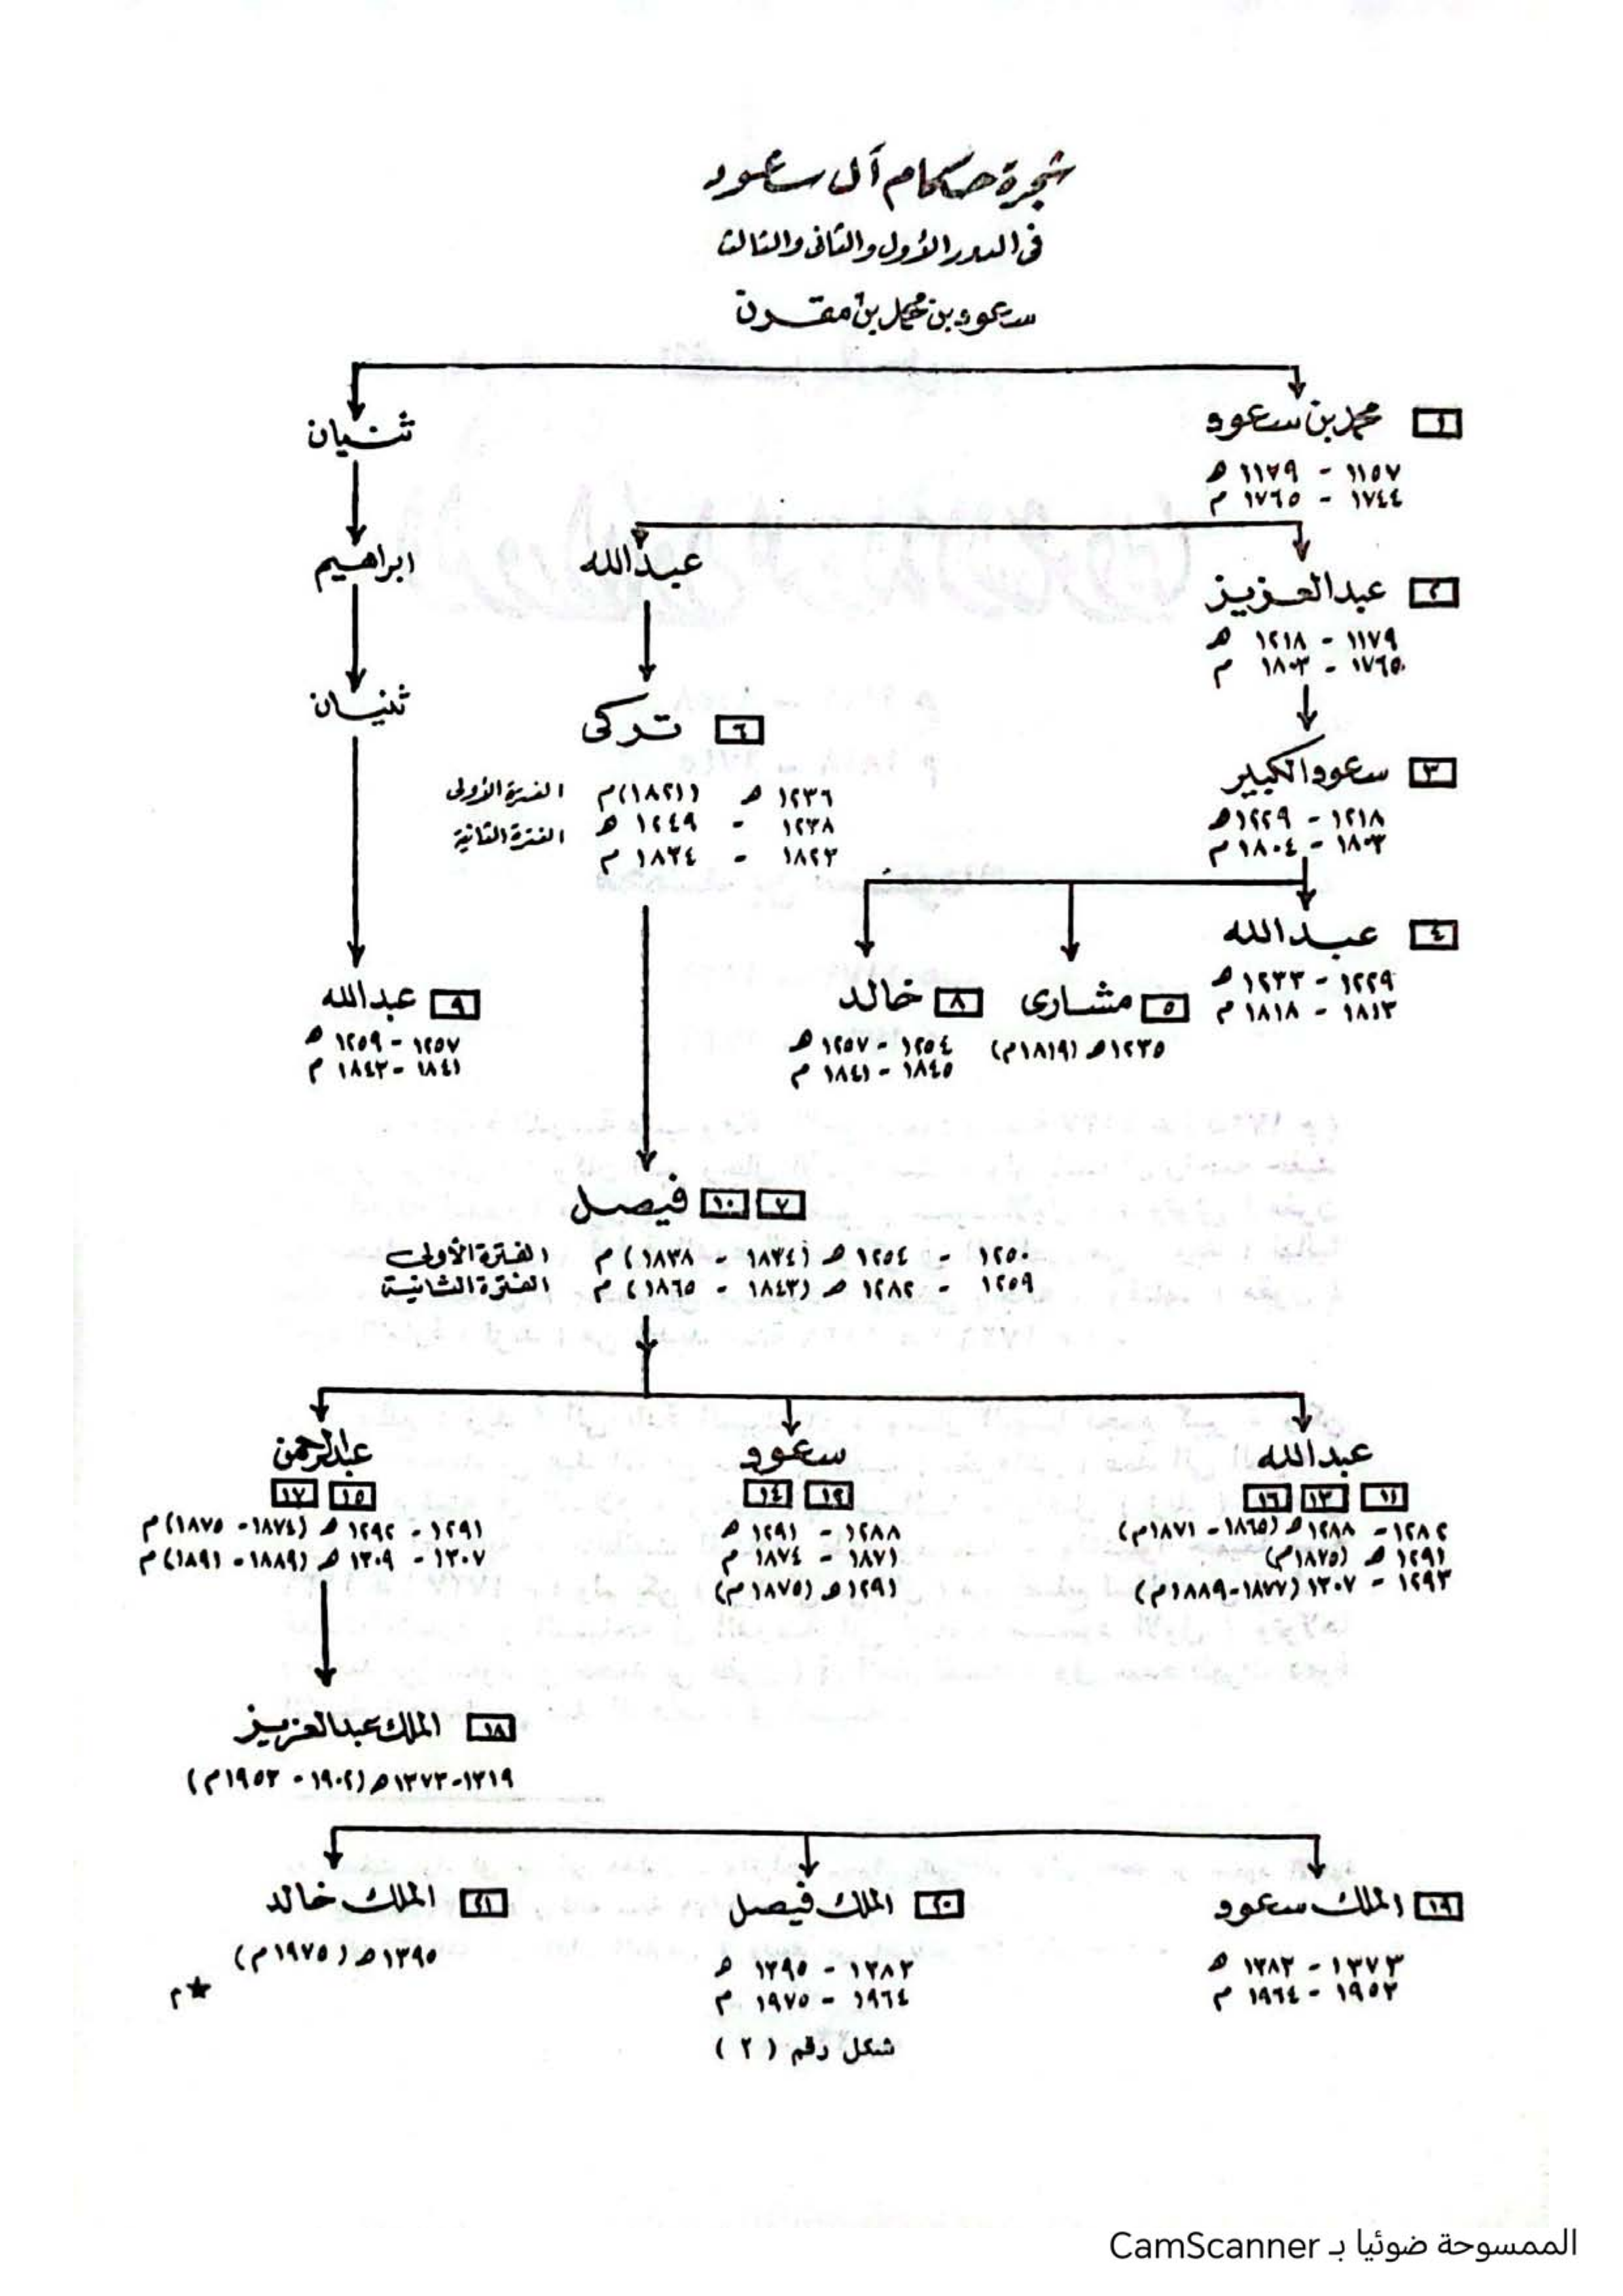 شجرة حكام آل سعود
فى الدور الأول والثانى والثالث
سعود بن محمد بن مقرن
١ محمد بن سعود
١١٥٧ - ١١٧٩ هـ
١٧٤٤ - ١٧٦٥ م
ثنيان
٢ عبدالعزيز
١١٧٩ - ١٢١٨ هـ
١٧٦٥ - ١٨٠٣ م
عبدالله
ابراهيم
ثنيان
٣ سعود الكبير
١٢١٨ - ١٢٢٩ هـ
١٨٠٣ - ١٨٠٤ م
٦ تركى
١٢٣٦ هـ (١٨٢١) م الفترة الأولى
١٢٣٨ - ١٢٤٩ هـ الفترة الثانية
١٨٢٣ - ١٨٣٤ م
٤ عبدالله
١٢٢٩ - ١٢٣٣ هـ
١٨١٣ - ١٨١٨ م
٥ مشارى
١٢٣٥ هـ (١٨١٩م)
٨ خالد
١٢٥٤ - ١٢٥٧ هـ
١٨٤٥ - ١٨٤١ م
٩ عبدالله
١٢٥٧ - ١٢٥٩ هـ
١٨٤١ - ١٨٤٣ م
٧ ١٠ فيصل
١٢٥٠ - ١٢٥٤ هـ (١٨٣٤ - ١٨٣٨) م الفترة الأولى
١٢٥٩ - ١٢٨٢ هـ (١٨٤٣ - ١٨٦٥) م الفترة الثانية
عبدالله
١١ ١٣ ١٦
١٢٨٢ - ١٢٨٨ هـ (١٨٦٥ - ١٨٧١م)
١٢٩١ هـ (١٨٧٥م)
١٢٩٣ - ١٣٠٧ (١٨٧٧-١٨٨٩م)
سعود
١٢ ١٤
١٢٨٨ - ١٢٩١ هـ
١٨٧١ - ١٨٧٤ م
١٢٩١ هـ (١٨٧٥م)
عبدالرحمن
١٥ ١٧
١٢٩١ - ١٢٩٢ هـ (١٨٧٤ - ١٨٧٥) م
١٣٠٧ - ١٣٠٩ هـ (١٨٨٩ - ١٨٩١) م
١٨ الملك عبدالعزيز
١٣١٩-١٣٧٣ هـ (١٩٠٢ - ١٩٥٣م)
١٩ الملك سعود
١٣٧٣ - ١٣٨٣ هـ
١٩٥٣ - ١٩٦٤ م
٢٠ الملك فيصل
١٣٨٣ - ١٣٩٥ هـ
١٩٦٤ - ١٩٧٥ م
٢١ الملك خالد
١٣٩٥ هـ (١٩٧٥م)
★م
شكل رقم (٢)
الممسوحة ضوئيا بـ CamScanner